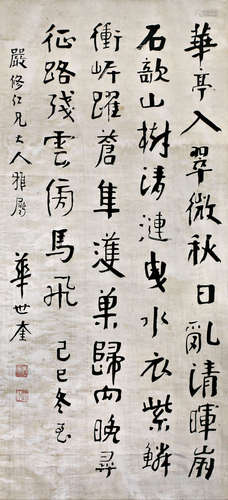 華亭入翠微秋日亂清暉崩
石欹山樹清漣曳水衣紫鱗
衝岸躍蒼隼護巢歸向晚尋
征路殘雲傍馬飛 己巳冬至
嚴修仁兄大人雅屬 華世奎